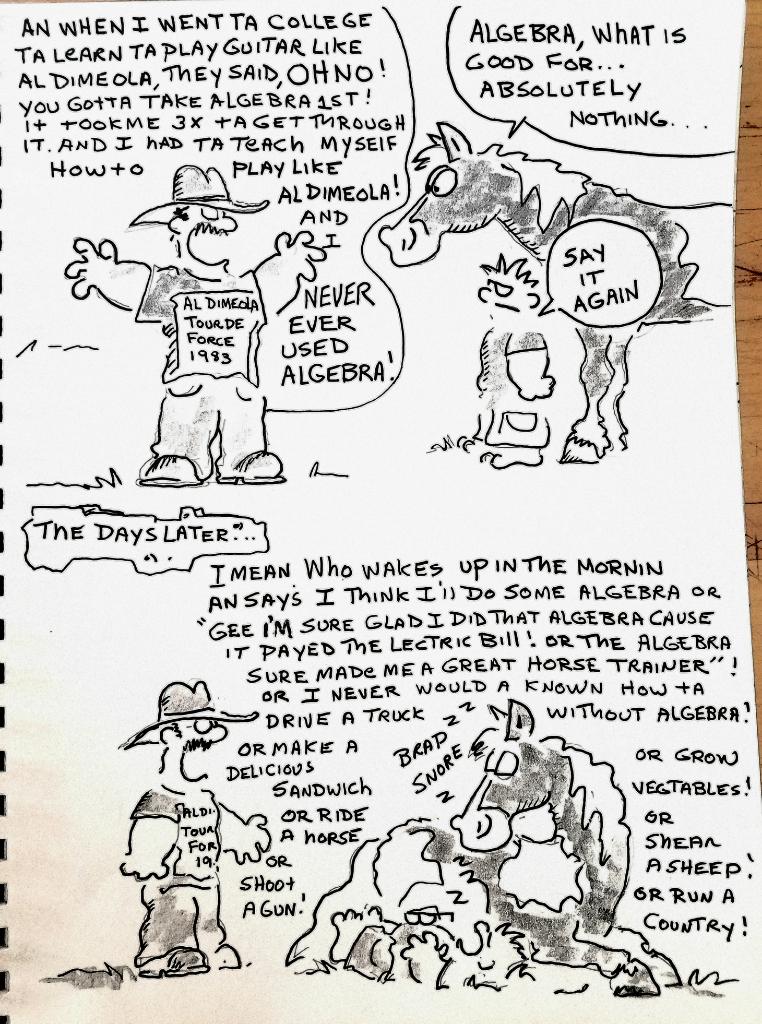 AN WHEN I WENT TA COLLEGE
TA LEARN TA PLAY GUITAR LIKE
AL DIMEOLA, THEY SAID, OH NO!
YOU GOTTA TAKE ALGEBRA 1ST!
IT TOOK ME 3X TA GET THROUGH
IT. AND I HAD TA TEACH MYSELF
HOW TO PLAY LIKE
AL DIMEOLA!
AND
I
NEVER
EVER
USED
ALGEBRA!
AL DIMEOLA
TOUR DE
FORCE
1983
ALGEBRA, WHAT IS
GOOD FOR...
ABSOLUTELY
NOTHING...
SAY
IT
AGAIN
THE DAYS LATER...
I MEAN WHO WAKES UP IN THE MORNIN
AN SAYS I THINK I'll DO SOME ALGEBRA OR
"GEE I'M SURE GLAD I DID THAT ALGEBRA CAUSE
IT PAYED THE LECTRIC BILL! OR THE ALGEBRA
SURE MADE ME A GREAT HORSE TRAINER"!
OR I NEVER WOULD A KNOWN HOW TA
DRIVE A TRUCK WITHOUT ALGEBRA!
OR MAKE A
DELICIOUS
SANDWICH
OR RIDE
A HORSE
OR
SHOOT
A GUN!
OR GROW
VEGTABLES!
OR
SHEAR
A SHEEP!
OR RUN A
COUNTRY!
ALDI.
TOUR
FOR
19.
BRAP
SNORE
Z Z Z
Z
Z
Z